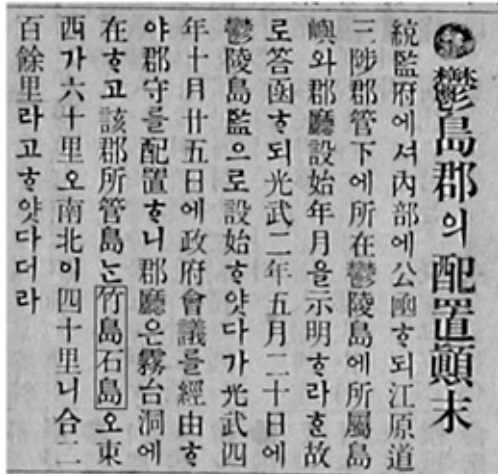 鬱島郡의 配置顚末
統監府에셔內部에公函ᄒᆞ되江原道
三陟郡管下에所在鬱陵島에所屬島
嶼와郡廳設始年月을示明ᄒᆞ라ᄒᆞᆫ故
로答函ᄒᆞ되光武二年五月二十日에
鬱陵島監으로設始ᄒᆞ얏다가光武四
年十月廿五日에政府會議를經由ᄒᆞ
야郡守를配置ᄒᆞ니郡廳은霧台洞에
在ᄒᆞ고該郡所管島ᄂᆞᆫ竹島石島오東
西가六十里오南北이四十里니合二
百餘里라고ᄒᆞ얏다더라